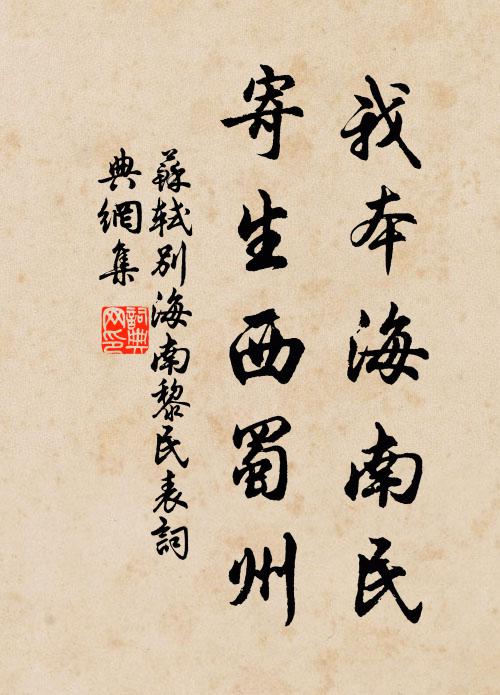 我本海南民
寄生西蜀州
蘇軾別海南黎民表詞
典網集
詞典
网印